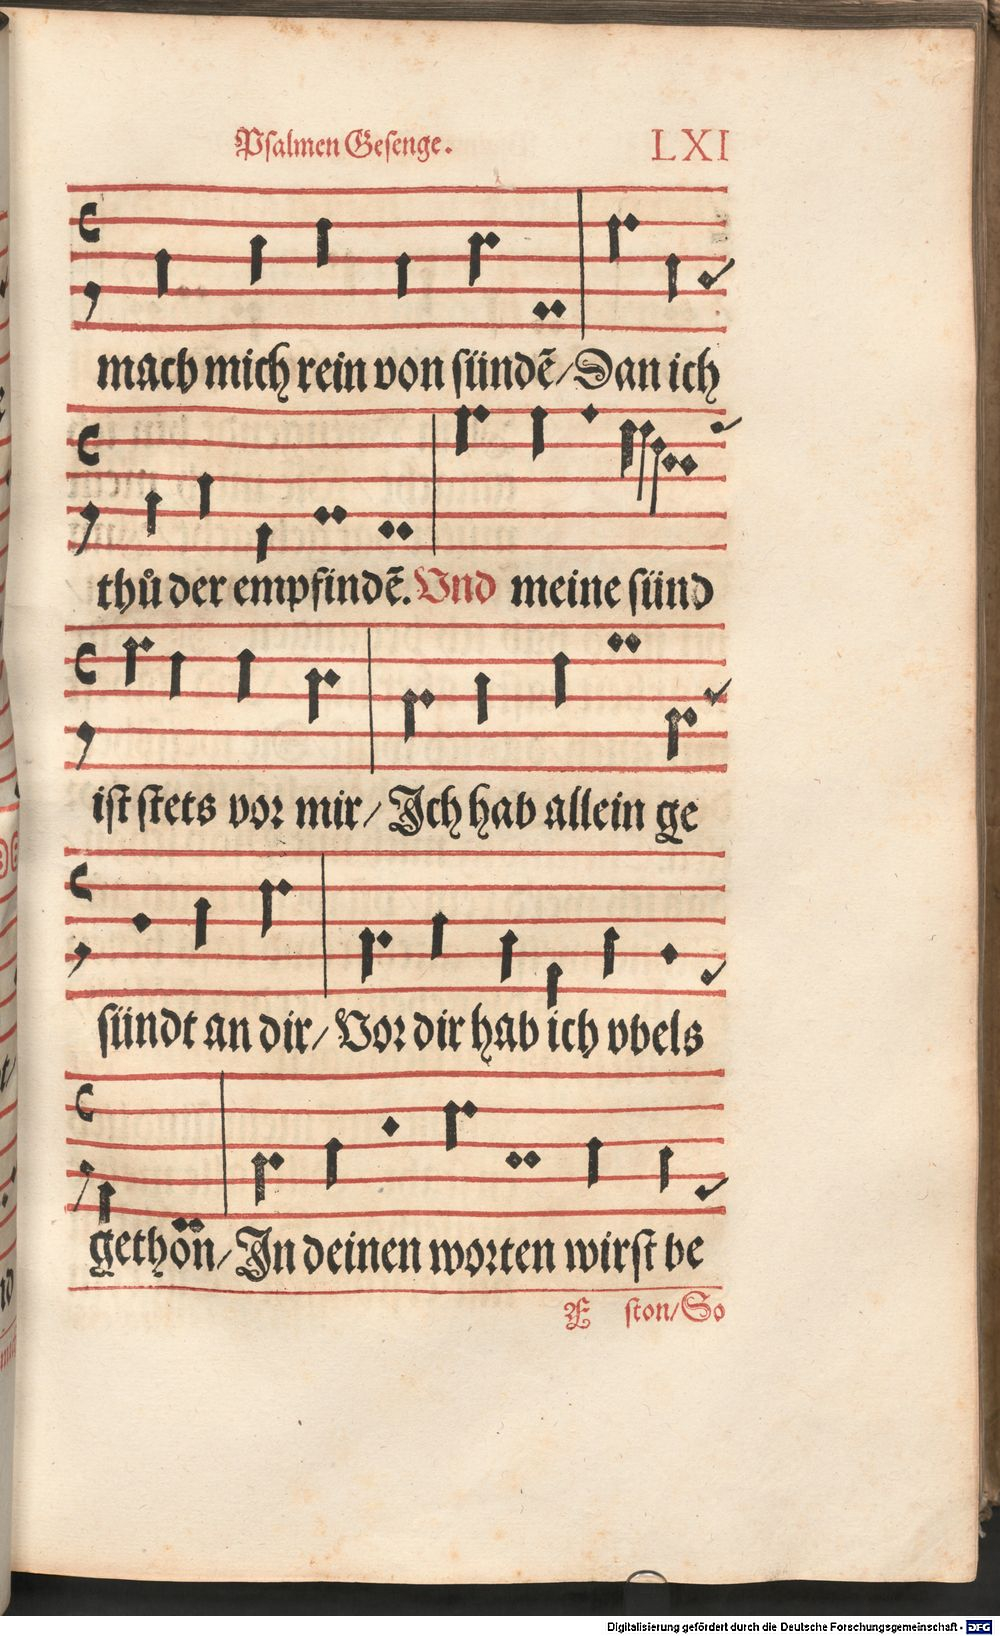 Psalmen Gesenge. LXI
mach mich rein von sündẽ/ Dan ich
thů der empfindẽ. Vnd meine sünd
ist stets vor mir/ Ich hab allein ge
sündt an dir/ Vor dir hab ich vbels
gethön/ In deinen worten wirst be
Æ ston/ So
Digitalisierung gefördert durch die Deutsche Forschungsgemeinschaft - DFG